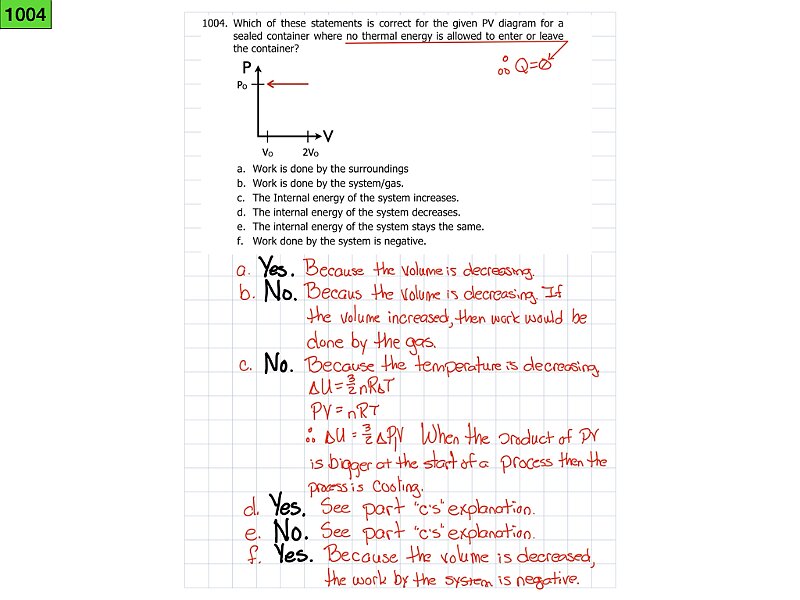 1004
1004. Which of these statements is correct for the given PV diagram for a
sealed container where no thermal energy is allowed to enter or leave
the container?
∴ Q=0
P
P₀
V
V₀ 2V₀
a. Work is done by the surroundings
b. Work is done by the system/gas.
c. The Internal energy of the system increases.
d. The internal energy of the system decreases.
e. The internal energy of the system stays the same.
f. Work done by the system is negative.
a. Yes. Because the volume is decreasing.
b. No. Becaus the volume is decreasing. If
the volume increased, then work would be
done by the gas.
c. No. Because the temperature is decreasing
ΔU = 3/2 nRΔT
PV = nRT
∴ ΔU = 3/2 ΔPV When the product of PV
is bigger at the start of a process then the
process is cooling.
d. Yes. See part "c's" explanation.
e. No. See part "c's" explanation.
f. Yes. Because the volume is decreased,
the work by the system is negative.